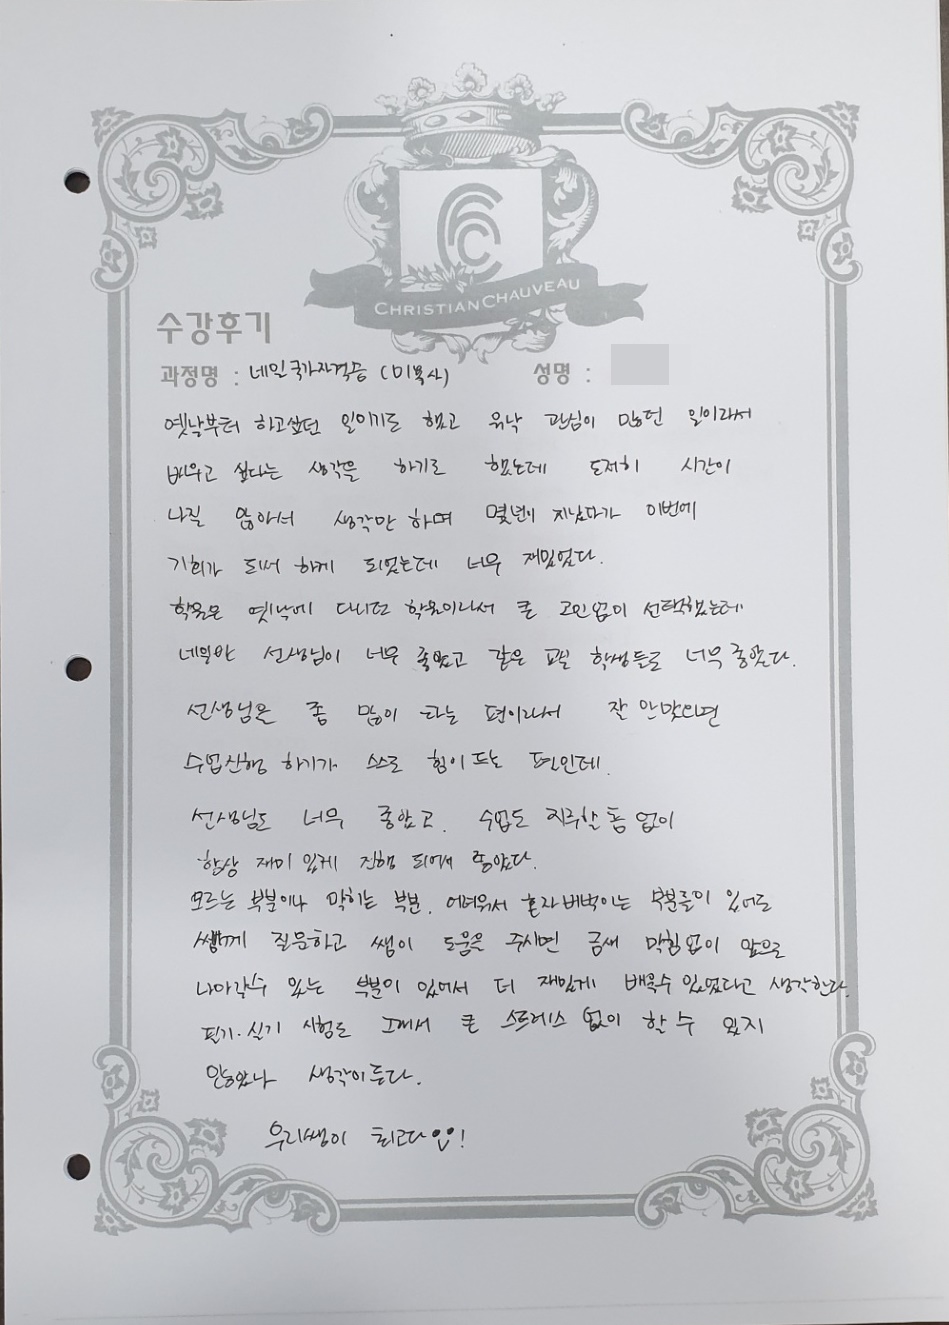 CHRISTIAN CHAUVEAU
수강후기
과정명 : 네일국가자격증 (미용사) 성명 :
옛날부터 하고싶던 일이기도 했고 워낙 관심이 많던 일이라서
배우고 싶다는 생각을 하기로 했는데 도저히 시간이
나질 않아서 생각만 하며 몇년이 지났다가 이번에
기회가 되어 하게 되었는데 너무 재밌었다.
학원은 옛날에 다니던 학원이라서 큰 고민없이 선택했는데
선생님이 너무 좋았고 같은 반 학생들도 너무 좋았다.
선생님은 좀 많이 타는 편이라서 잘 안맞으면
수업진행 하기가 스스로 힘이 드는 편인데.
선생님도 너무 좋았고. 수업도 지루할 틈 없이
항상 재미 있게 진행 되어서 좋았다.
모르는 부분이나 막히는 부분. 어려워서 혼자 버벅이는 부분들이 있어도
쌤께 질문하고 쌤이 도움을 주시면 금새 막힘없이 앞으로
나아갈수 있는 부분이 있어서 더 재밌게 배울수 있었다고 생각한다.
필기·실기 시험도 그래서 큰 스트레스 없이 할 수 있지
않았나 생각이든다.
우리쌤이 최고다!